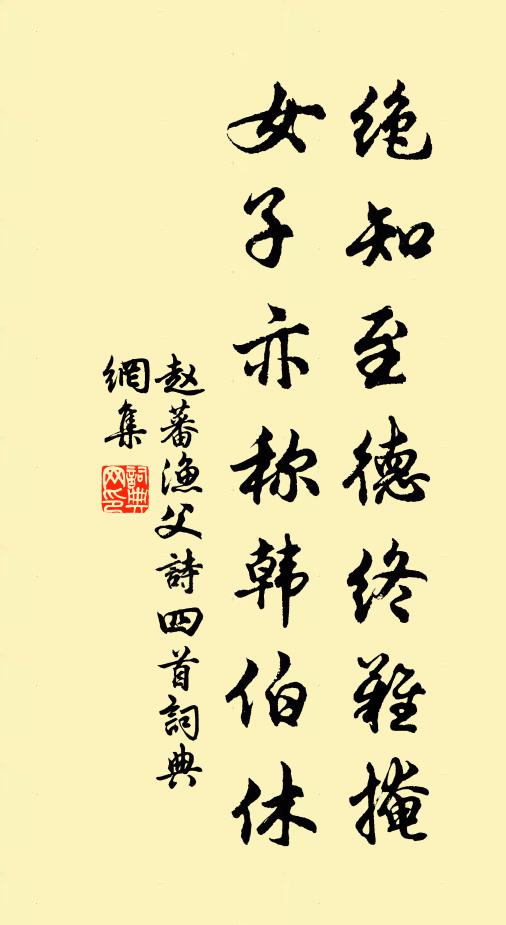 绝知至德终难掩
女子亦称韩伯休
赵蕃渔父詩四首詞典
網集
詞典网印